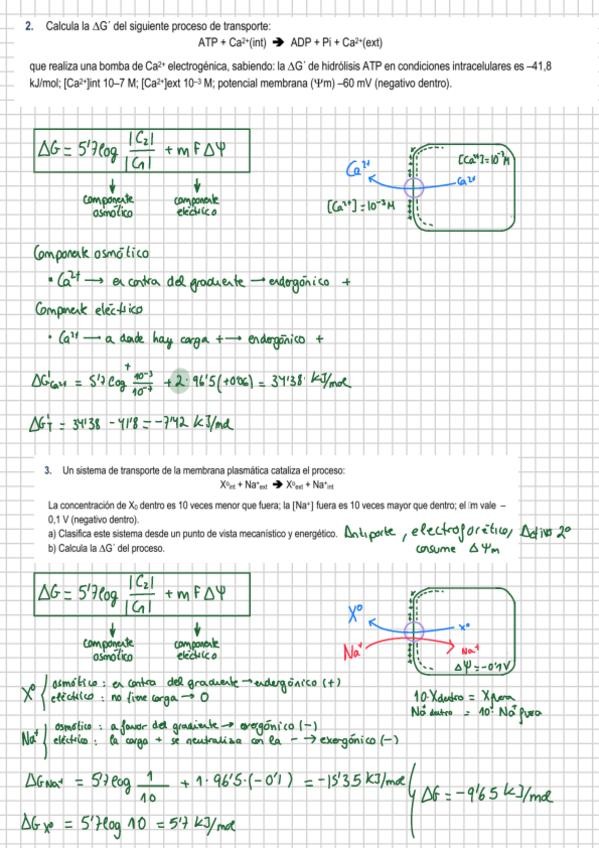 2. Calcula la ΔG´ del siguiente proceso de transporte:
ATP + Ca²⁺(int) ➔ ADP + Pi + Ca²⁺(ext)
que realiza una bomba de Ca²⁺ electrogénica, sabiendo: la ΔG´ de hidrólisis ATP en condiciones intracelulares es –41,8
kJ/mol; [Ca²⁺]int 10–7 M; [Ca²⁺]ext 10⁻³ M; potencial membrana (Ψm) –60 mV (negativo dentro).
ΔG = 5'7 log |C₂| / |C₁| + m F Δψ
componente osmótico
componente eléctrico
Ca²⁺
[Ca²⁺]=10⁻⁷M
Ca²⁺
[Ca²⁺]=10⁻³M
Componente osmótico
• Ca²⁺ → en contra del gradiente → endergónico +
Componente eléctrico
• Ca²⁺ → a donde hay carga + → endergónico +
ΔG'Ca²⁺ = 5'7 log 10⁻³ / 10⁻⁷ + 2 · 96'5 (+0'06) = 34'38 kJ/mol
ΔG'T = 34'38 - 41'8 = -7'42 kJ/mol
3. Un sistema de transporte de la membrana plasmática cataliza el proceso:
X⁰int + Na⁺ext ➔ X⁰ext + Na⁺int
La concentración de X₀ dentro es 10 veces menor que fuera; la [Na⁺] fuera es 10 veces mayor que dentro; el m vale –
0,1 V (negativo dentro).
a) Clasifica este sistema desde un punto de vista mecanístico y energético. Antiporte, electroforético, Activo 2º
consume ΔΨm
b) Calcula la ΔG´ del proceso.
ΔG = 5'7 log |C₂| / |C₁| + m F Δψ
componente osmótico
componente eléctrico
X⁰
X⁰
Na⁺
Na⁺
Δψ = -0'1V
X⁰ { osmótico : en contra del gradiente → endergónico (+)
eléctrico : no tiene carga → 0
10·Xdentro = Xfuera
Na⁺dentro = 10· Na⁺fuera
Na⁺ { osmótico : a favor del gradiente → exergónico (-)
eléctrico : la carga + se neutraliza con la - → exergónico (-)
ΔG Na⁺ = 5'7 log 1 / 10 + 1 · 96'5 · (-0'1) = -15'35 kJ/mol
ΔG = -9'65 kJ/mol
ΔG X⁰ = 5'7 log 10 = 5'7 kJ/mol